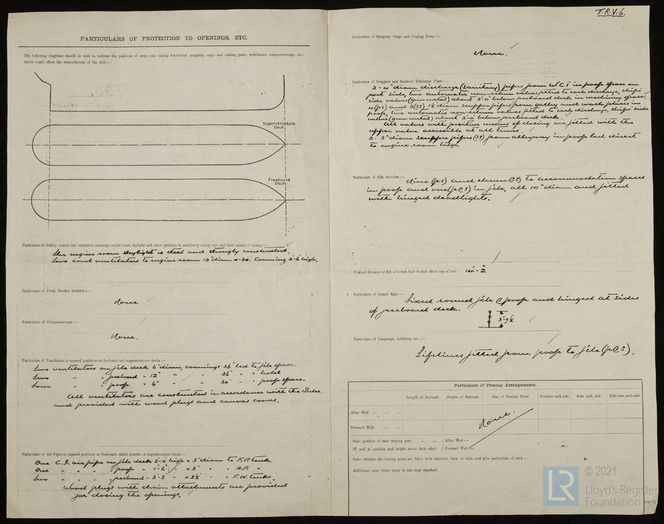 T.R.V.6.
PARTICULARS OF PROTECTION TO OPENINGS, ETC.
The following diagrams should be used to indicate the positions of cargo and coaling hatchways, gangway, cargo and coaling ports, ventilators, companionways, etc.,
which would affect the seaworthiness of the ship:—
Superstructure
Deck
Freeboard
Deck
Particulars of fiddley, funnel and ventilator coamings, engine room skylight and other openings in machinery casing tops and their means of closing
The engine room skylight is steel and strongly constructed.
Two cowl ventilators to engine room 12" diam x Coaming 2-6 high.
Particulars of Flush Bunker Scuttles:—
None
Particulars of Companionways:—
None.
Particulars of Ventilators in exposed positions on freeboard and superstructure decks:—
Two ventilators on fcle deck 6" diam, coamings 36" led to fcle space.
Two " " freeboard " 12" " " 36" " " hold
Four " " poop " 6" " " 30" " " poop space.
All ventilators are constructed in accordance with the Rules
and provided with wood plugs and canvas covers.
Particulars of Air Pipes in exposed positions on freeboard, raised quarter, or superstructure decks:—
One C.I. air pipe on fcle deck 3-0 high x 3" diam to F.P. tank
One " " " poop " 1-6 " x 3" " " A.P. "
Two " " " freeboard " 3-3 " x 2½" " " F.W. tanks.
Wood plugs with chain attachments are provided
for closing the openings.
Particulars of Gangway Cargo and Coaling Ports:—
None.
Particulars of Scuppers and Sanitary Discharge Pipes:—
2-4" diam discharge (sanitary) pipes from W.C.s in poop space on
port side, two automatic non-return valves fitted to each discharge, ships
side valve (gunmetal) about 3-0 below freeboard deck in machinery space
diam scupper pipes from galley and wash places in
poop, two automatic non-return valves fitted to each discharge, ships side
valve (gunmetal) about 3-0 below freeboard deck.
All valves with positive means of closing are fitted with the
upper valve accessible at all times.
2-3" diam scupper pipes from alleyway in poop led direct
to engine room bilge.
Particulars of Side Scuttles:—
Nine (p) and eleven (S) to accommodation spaces
in poop and one (p&S) in fcle, all 10" diam and fitted
with hinged deadlights.
Vertical distance of Sill of lowest Side Scuttle above top of keel
Particulars of Guard Rails:—
Fixed round fcle & poop and hinged at sides
of freeboard deck.
3'-7½
Particulars of Gangways, Lifelines, etc.:—
Lifelines fitted from poop to fcle (p&S).
Particulars of Freeing Arrangements.
Length of Bulwark
Height of Bulwark
Size of Freeing Ports
Number each side
Area each side
Rule area each side
After Well
Forward Well
None.
State position of each freeing port
(F. and A. position and height above deck edge)
After Well:—
Forward Well:—
State whether the freeing ports are fitted with shutters, bars or rails, and give particulars of such:—
Additional area where sheer is less than standard.
© 2021
LR
Lloyd's Register
Foundation